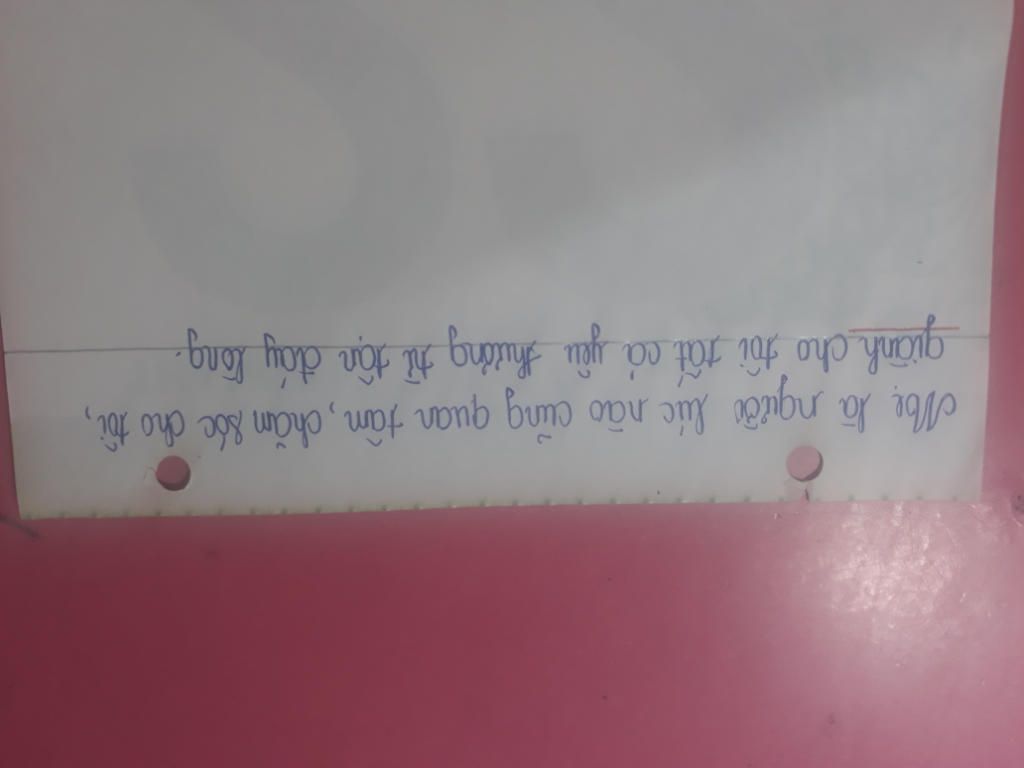 Mẹ là người lúc nào cũng quan tâm, chăm sóc cho tôi,
giành cho tôi tất cả yêu thương từ tận đáy lòng.